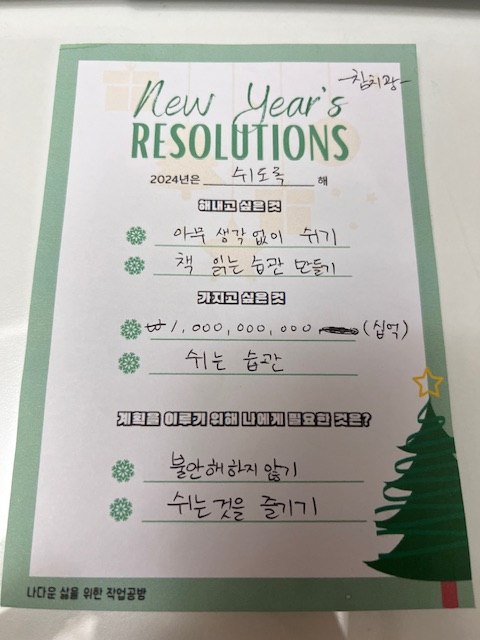 -참치광-
New Year's
RESOLUTIONS
2024년은 쉬도록 해
해내고 싶은 것
아무 생각 없이 쉬기
책 읽는 습관 만들기
가지고 싶은 것
₩1,000,000,000 (십억)
쉬는 습관
계획을 이루기 위해 나에게 필요한 것은?
불안해하지 않기
쉬는것을 즐기기
나다운 삶을 위한 작업공방